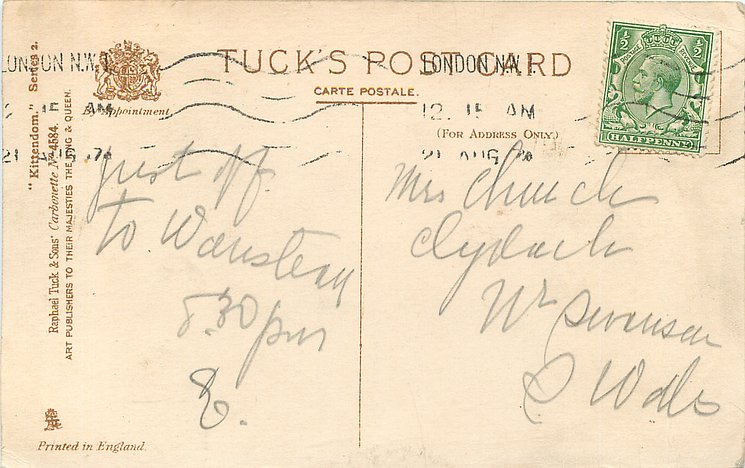 TUCK'S POST CARD
CARTE POSTALE.
(FOR ADDRESS ONLY.)
By Appointment.
LONDON N.W.1
12. 15 AM
21 AUG
LONDON N.W.1
15 AM
21
½ ½
POSTAGE REVENUE
HALFPENNY
"Kittendom." Series 2.
Raphael Tuck & Sons' Carbonette No 4584.
ART PUBLISHERS TO THEIR MAJESTIES THE KING & QUEEN.
just off
to Wanstead
8.30 pm
E.
Mrs Church
Clydach
Nr Swansea
S Wales
Printed in England.